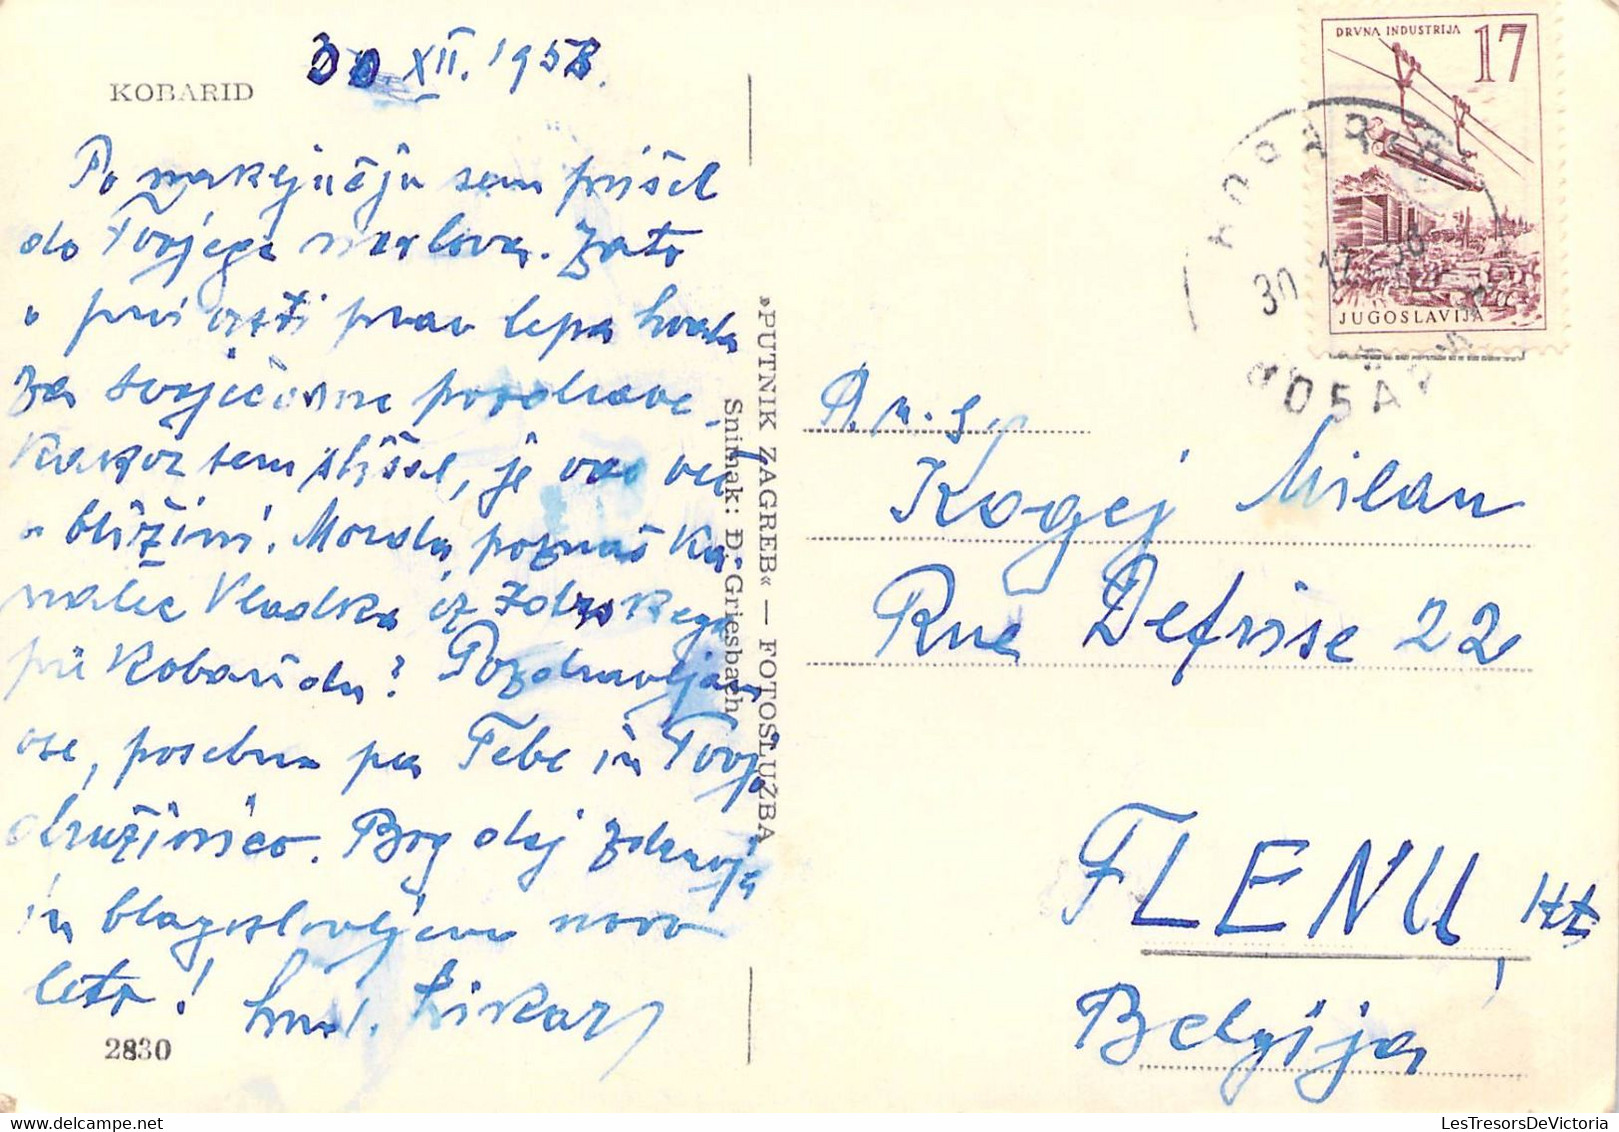 KOBARID
30. XII. 1958.
Po naključju sem prišel
do Tvojega naslova. Zato
prav lepa hvala
za pozdrave.
Kakor sem slišal, je vas več
v bližini. Morda poznaš Ka-
valič Vladka iz Idrskega
pri Kobaridu? Pozdravljam
vse, posebno pa Tebe in Tvojo
družinico. Bog daj zdravja
in blagoslovljeno novo
leto!
2830
»PUTNIK ZAGREB« — FOTOSLUŽBA
Snimak: Đ. Griesbach
DRVNA INDUSTRIJA 17
JUGOSLAVIJA
KOBARID
30 12 58
KOBARID
Kogej Milan
Rue Defrise 22
FLENU, Ht,
Belgija
LesTresorsDeVictoria